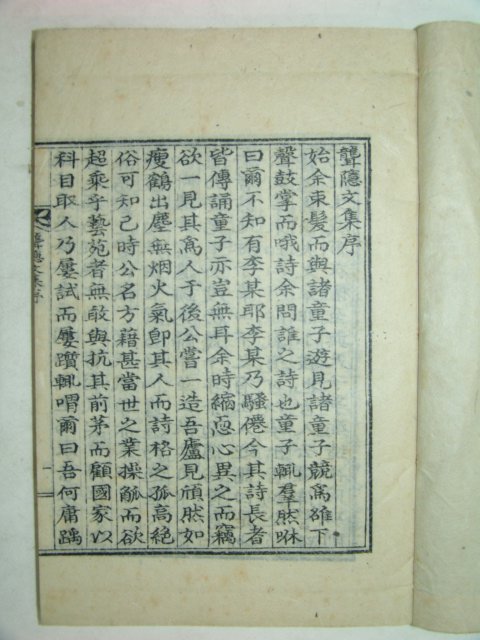 聾隱文集序
始余束髮而與諸童子遊見諸童子競爲雄下
聲鼓掌而哦詩余問誰之詩也童子輒羣然咻
曰爾不知有李某耶李某乃騷僊今其詩長者
皆傳誦童子亦豈無耳余時縮恧心異之而竊
欲一見其爲人于後公嘗一造吾廬見頎然如
瘦鶴出塵無烟火氣卽其人而詩格之孤高絶
俗可知已時公名方藉甚當世之業操觚而欲
超乘乎藝苑者無敢與抗其前茅而顧國家以
科目取人乃屢試而屢躓輒喟爾曰吾何庸踽
聾隱文集序
一